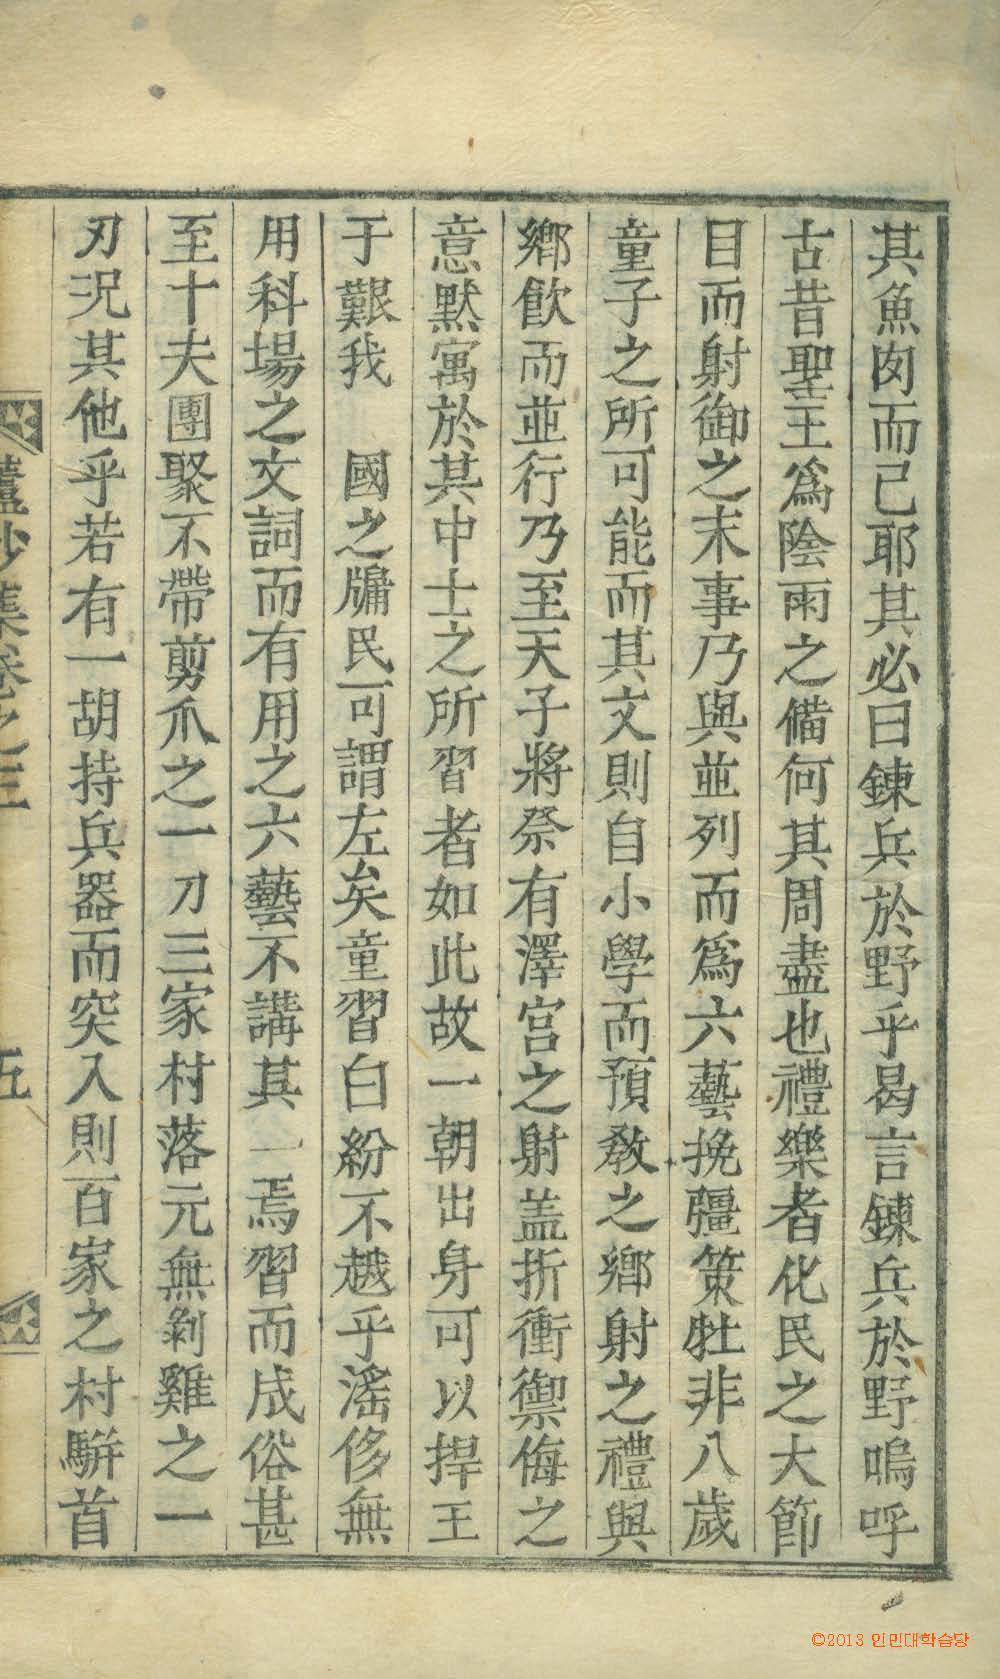 其魚肉而已耶其必曰鍊兵於野乎曷言鍊兵於野嗚呼
古昔聖王爲陰雨之備何其周盡也禮樂者化民之大節
目而射御之末事乃與並列而爲六藝挽彊策牡非八歲
童子之所可能而其文則自小學而預教之鄕射之禮與
鄕飮而並行乃至天子將祭有澤宮之射盖折衝禦侮之
意默寓於其中士之所習者如此故一朝出身可以捍王
于艱我 國之牗民可謂左矣童習白紛不越乎滛侈無
用科場之文詞而有用之六藝不講其一焉習而成俗甚
至十夫團聚不帶剪爪之一刀三家村落元無剝雞之一
刃况其他乎若有一胡持兵器而突入則百家之村騈首
集卷之三
五
©2013 인민대학습당